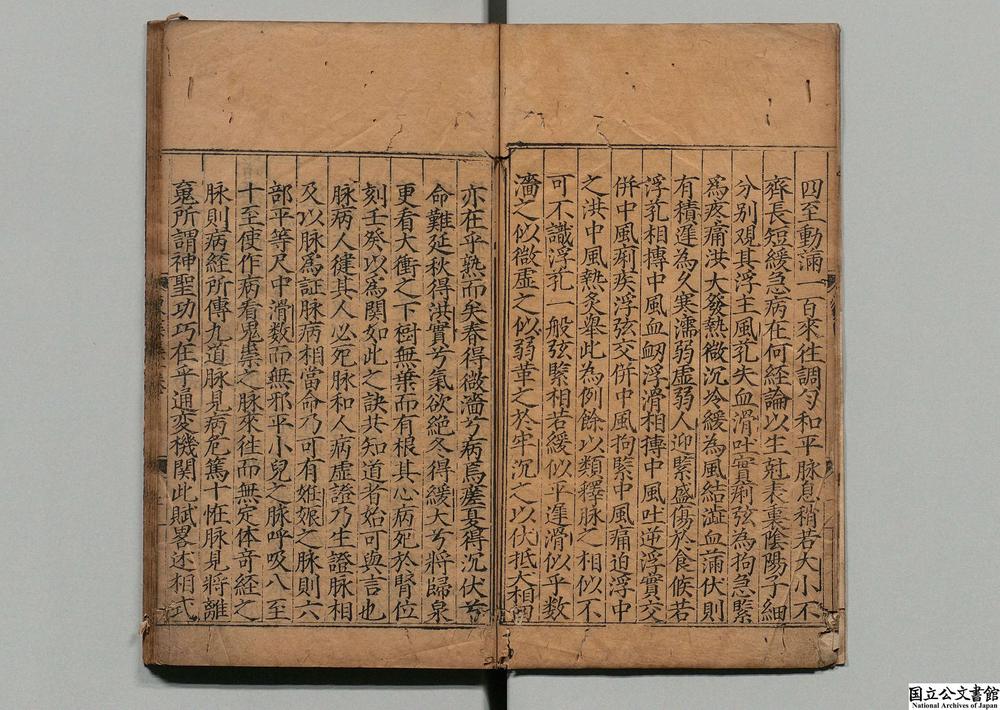 四至動滿一百來徃調勻和平脉息稍若大小不
齊長短緩急病在何経論以生尅表裏陰陽子細
分别观其浮主風芤失血滑吐實痢弦為拘急緊
為疼痛洪大發熱微沉冷緩為風結澁血滿伏則
有積遲為久寒濡弱虚弱人迎緊盛傷於食候若
浮芤相摶中風血衂浮滑相摶中風吐逆浮實交
併中風痢疾浮弦交併中風拘緊中風痛迫浮中
之洪中風熱多舉此為例餘以類釋脉之相似不
可不識浮芤一般弦緊相若緩似乎遲滑似乎数
濇之似微虚之似弱革之於牢沉之以伏抵大相
亦在乎熟而矣春得微濇兮病焉蓙夏得沉伏兮
命難延秋得洪實兮氣欲絶冬得緩大兮將歸泉
更看大衝之下樹無葉而有根其心病死於腎位
刻壬癸以為関如此之訣共知道者始可與言也
脉病人徤其人必死脉和人病虚證乃生證脉相
及以脉為証脉病相當命乃可有姙娠之脉則六
部平等尺中滑数而無邪平小兒之脉呼吸八至
十至使作病看鬼祟之脉來徃而無定体竒經之
脉則病経所傳九道脉見病危篤十怪脉見將離
䰟所謂神聖功巧在乎通変機関此賦畧述相式
国立公文書館
National Archives of Japan